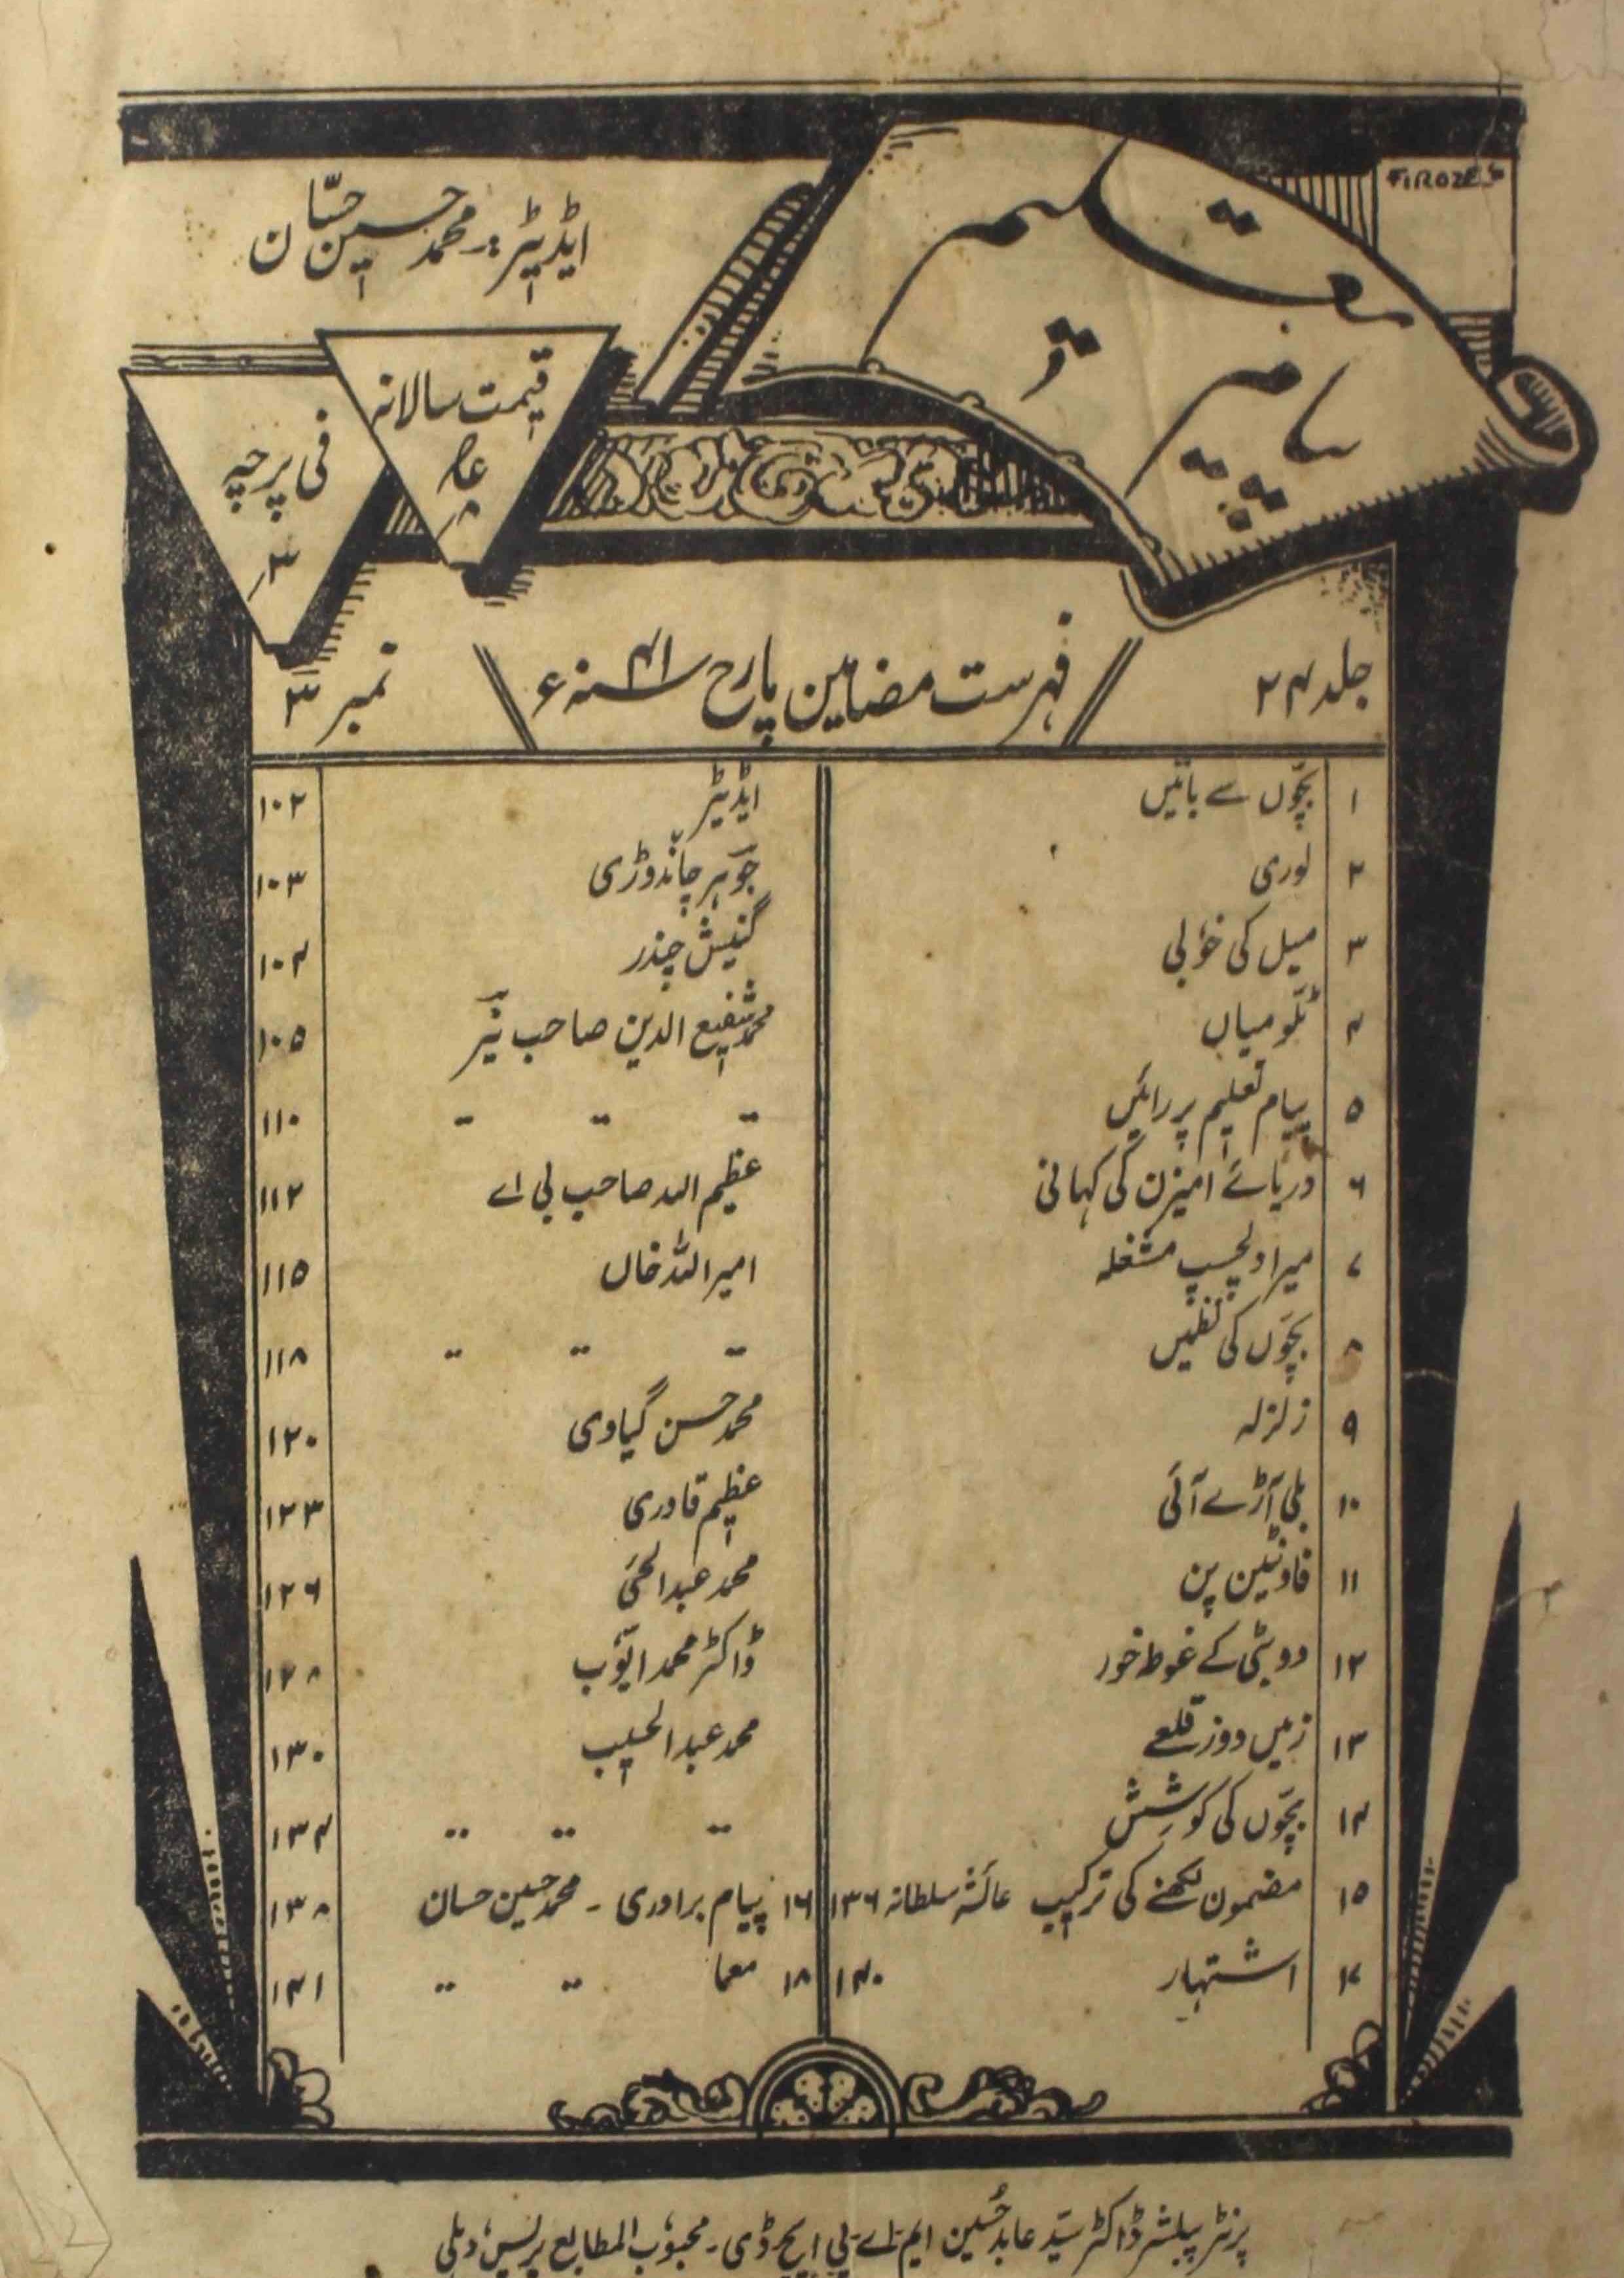 FIROZES
پیام تعلیم
ایڈیٹر:۔ محمد حسین حسّان
قیمت سالانہ
فی پرچہ
۳؍
جلد ۲۴ فہرست مضامین مارچ ۴۱ سنہ ء نمبر ۳
۱ بچّوں سے باتیں ایڈیٹر ۱۰۲
۲ لوری جوہر چاندوڑی ۱۰۳
۳ میل کی خوبی گنیش چندر ۱۰۴
۴ ٹلّو میاں محمد شفیع الدین صاحب نیّر ۱۰۵
۵ پیام تعلیم پر رائیں ۱۱۰
۶ دریائے امیزن کی کہانی عظیم اللہ صاحب بی اے ۱۱۲
۷ میرا دلچسپ مشغلہ امیر اللہ خاں ۱۱۵
۸ بچّوں کی نظمیں ۱۱۸
۹ زلزلہ محمد حسن گیاوی ۱۲۰
۱۰ بلی آڑے آئی عظیم قادری ۱۲۳
۱۱ فاونٹین پن محمد عبدالحئی ۱۲۶
۱۲ دوبٹی کے غوطہ خور ڈاکٹر محمد ایّوب ۱۲۸
۱۳ زمیں دوز قلعے محمد عبدالحسیب ۱۳۰
۱۴ بچّوں کی کوشش ۱۳۴
۱۵ مضمون لکھنے کی ترکیب عائشہ سلطانہ ۱۳۶ ۱۶ پیام برادری ۔ محمد حسین حسان ۱۳۸
۱۷ اشتہار ۱۴۰ ۱۸ معما ۱۴۱
پرنٹر پبلشر ڈاکٹر سیّد عابد حُسین ایم۔اے۔پی ایچ۔ڈی۔ محبوب المطابع پریس، دہلی